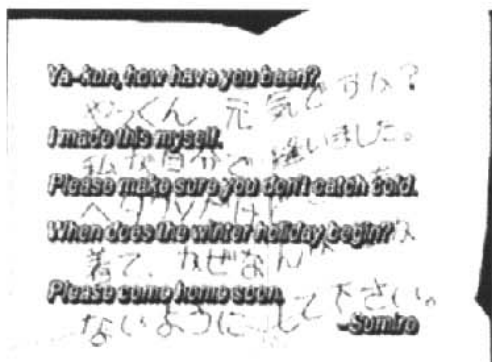 Ya-kun, how have you been?
やっくん 元気ですか？
I made this myself.
私が自分で縫いました。
Please make sure you don't catch cold.
When does the winter holiday begin?
着て、かぜなんか
Please come home soon.
ないようにして下さい。
-Sumire